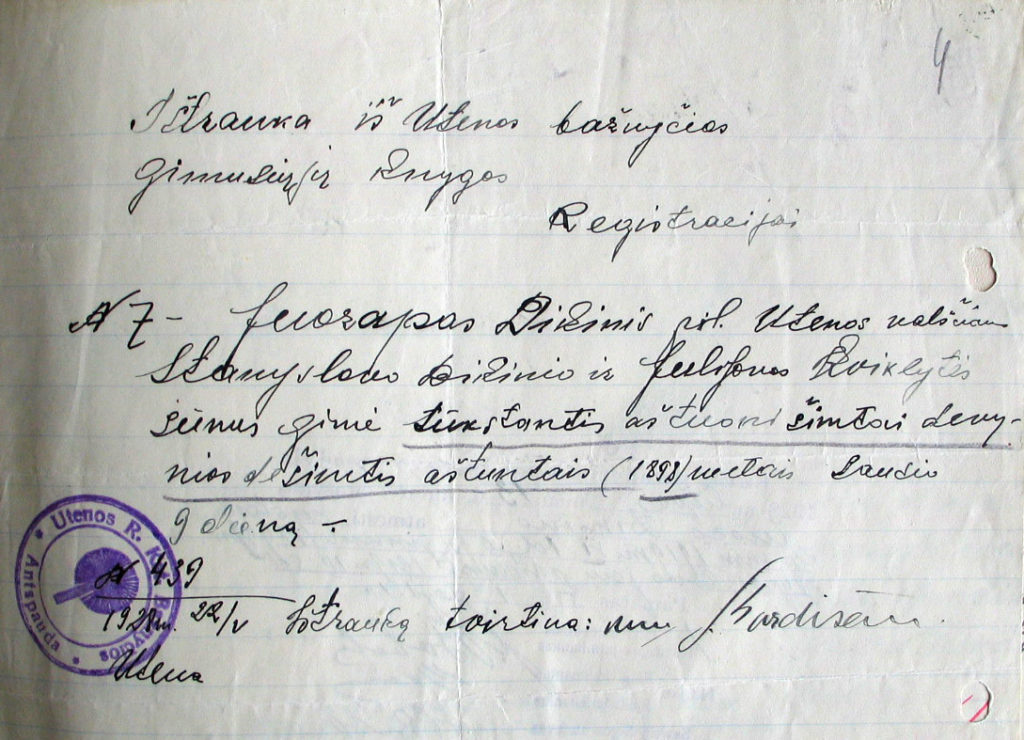 4
Ištrauka iš Utenos bažnyčios
gimusiųjų knygos
Registracijai
N 7 - Juozapas Dičinis pil. Utenos valsčiaus
Stanyslovo Dičinio ir Julijonos Kviklytės
sūnus gimė tūkstantis aštuoni šimtai devy-
nios dešimtis aštuntais (1898) metais Sausio
9 dieną -
N 439
192 m. 22/V Ištrauką tvirtina:
Utena
Utenos R. K. Bažnyčios
Antspauda